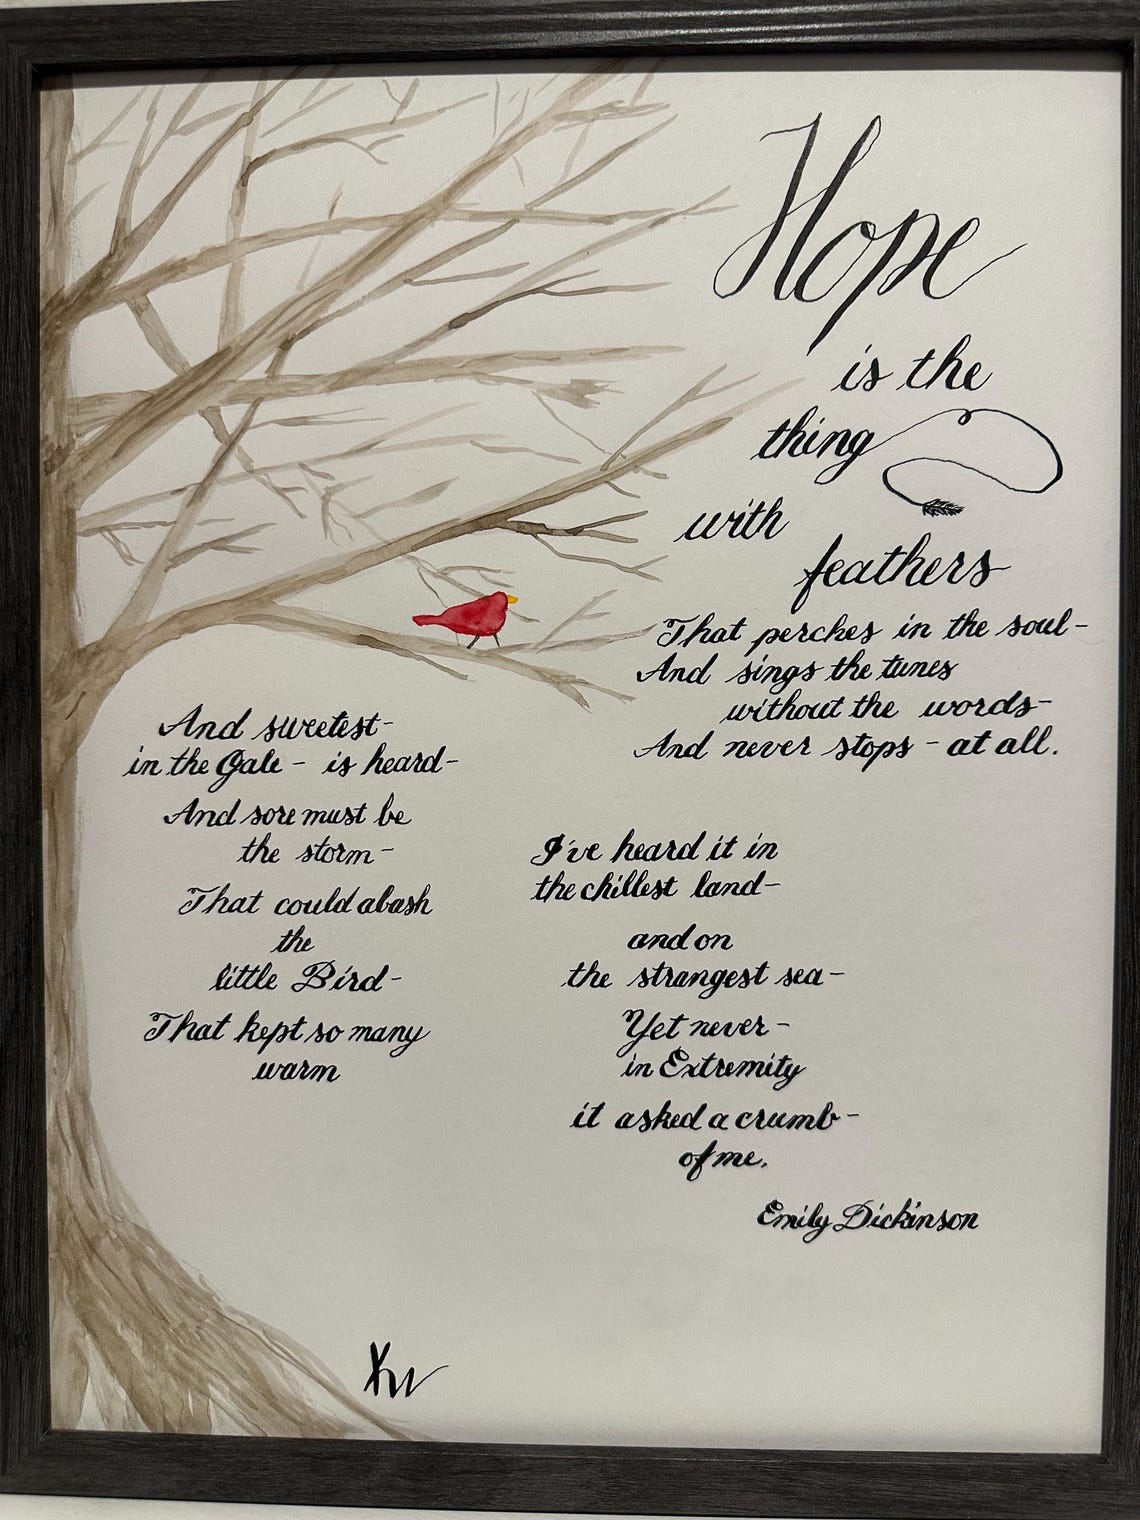 Hope
is the
thing
with
feathers
That perches in the soul-
And sings the tunes
without the words-
And never stops - at all.
And sweetest-
in the Gale - is heard-
And sore must be
the storm-
That could abash
the
little Bird-
That kept so many
warm
I've heard it in
the chillest land-
and on
the strangest sea-
Yet never -
in Extremity
it asked a crumb-
of me.
Emily Dickinson